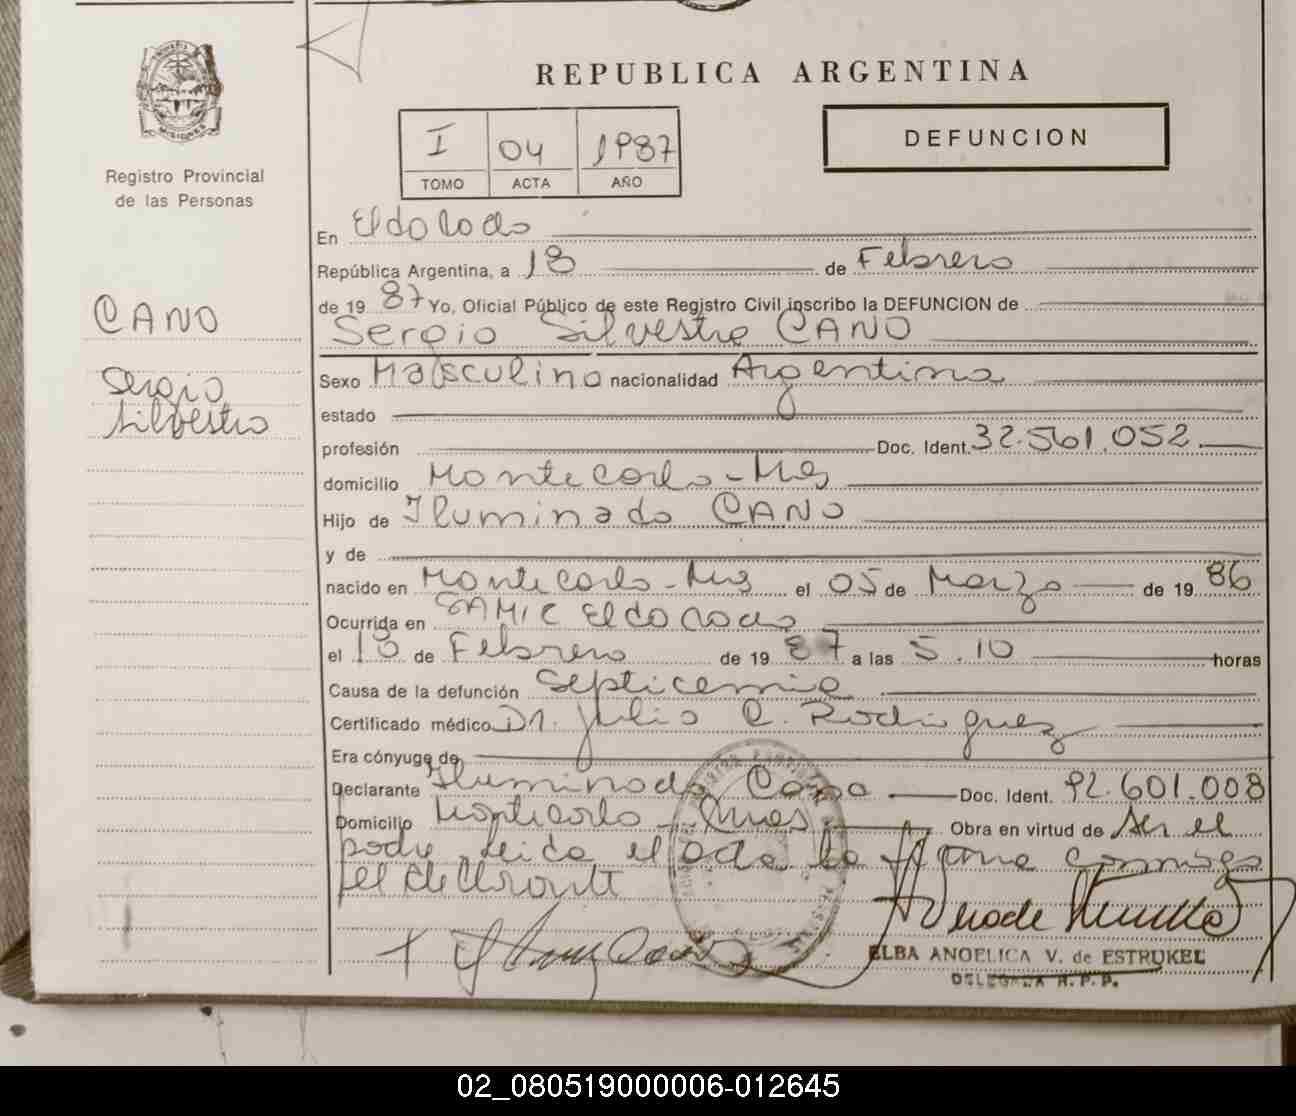 REPUBLICA ARGENTINA
I 04 1987
TOMO ACTA AÑO
DEFUNCION
MISIONES
Registro Provincial
de las Personas
CANO
Sergio
Silvestre
En Eldorado
República Argentina, a 18 de Febrero
de 1987 Yo, Oficial Público de este Registro Civil inscribo la DEFUNCION de
Sergio Silvestre CANO
Sexo Masculino nacionalidad Argentina
estado
profesión Doc. Ident. 32.561.052
domicilio Montecarlo - Mns
Hijo de Iluminado CANO
y de
nacido en Montecarlo - Mns el 05 de Marzo de 1986
Ocurrida en SAMIC Eldorado
el 18 de Febrero de 1987 a las 5.10 horas
Causa de la defunción Septicemia
Certificado médico Dr. Julio C. Rodriguez
Era cónyuge de
Declarante Iluminado Cano Doc. Ident. 92.601.008
Domicilio Montecarlo - Mnes Obra en virtud de ser el
padre leida el acta la firma conmigo
el declarante
ELBA ANGELICA V. de ESTRUKEL
DELEGADA R.P.P.
02_080519000006-012645